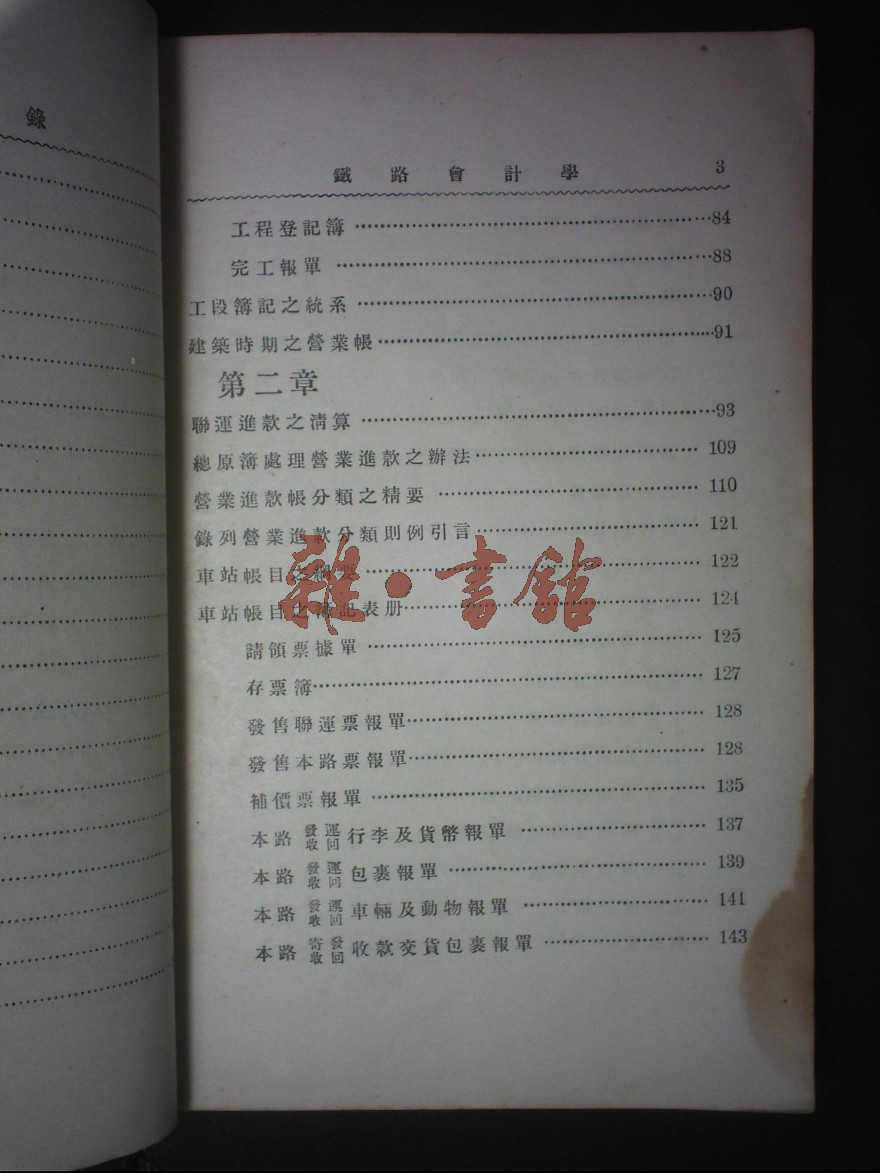 錄
鐵路會計學 3
工程登記簿 84
完工報單 88
工段簿記之統系 90
建築時期之營業帳 91
第二章
聯運進款之清算 93
總原簿處理營業進款之辦法 109
營業進款帳分類之精要 110
錄列營業進款分類則例引言 121
車站帳目之綱要 122
車站帳目之簿記表册 124
請領票據單 125
存票簿 127
發售聯運票報單 128
發售本路票報單 128
補價票報單 135
本路 發運 收回 行李及貨幣報單 137
本路 發運 收回 包裹報單 139
本路 發運 收回 車輛及動物報單 141
本路 寄發 收回 收款交貨包裹報單 143
雜·書館